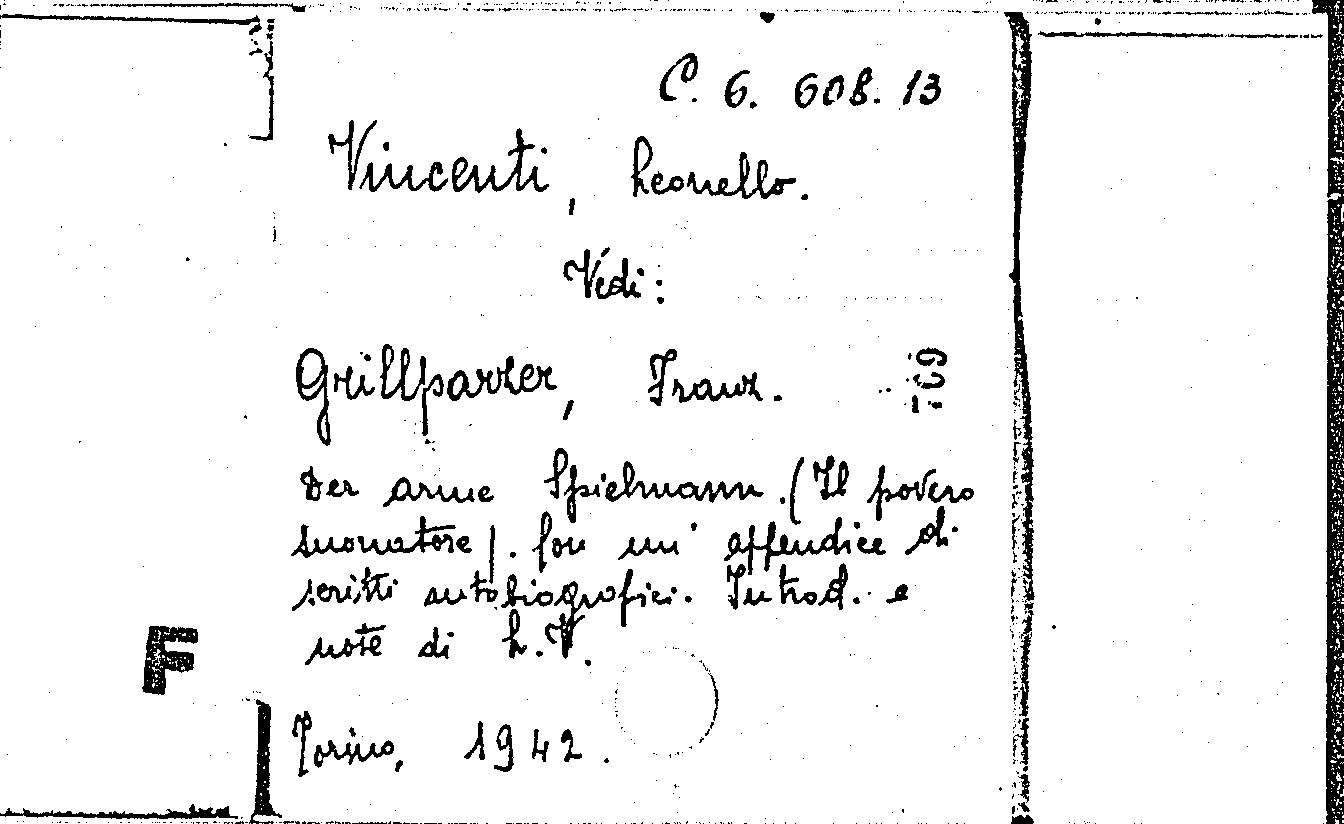 C. 6. 608. 13
Vincenti, Leonello.
Vedi:
Grillparzer, Franz.
Der arme Spielmann. (Il povero
suonatore). Con un' appendice di
scritti autobiografici. Introd. e
note di L. V.
F
Torino, 1942.